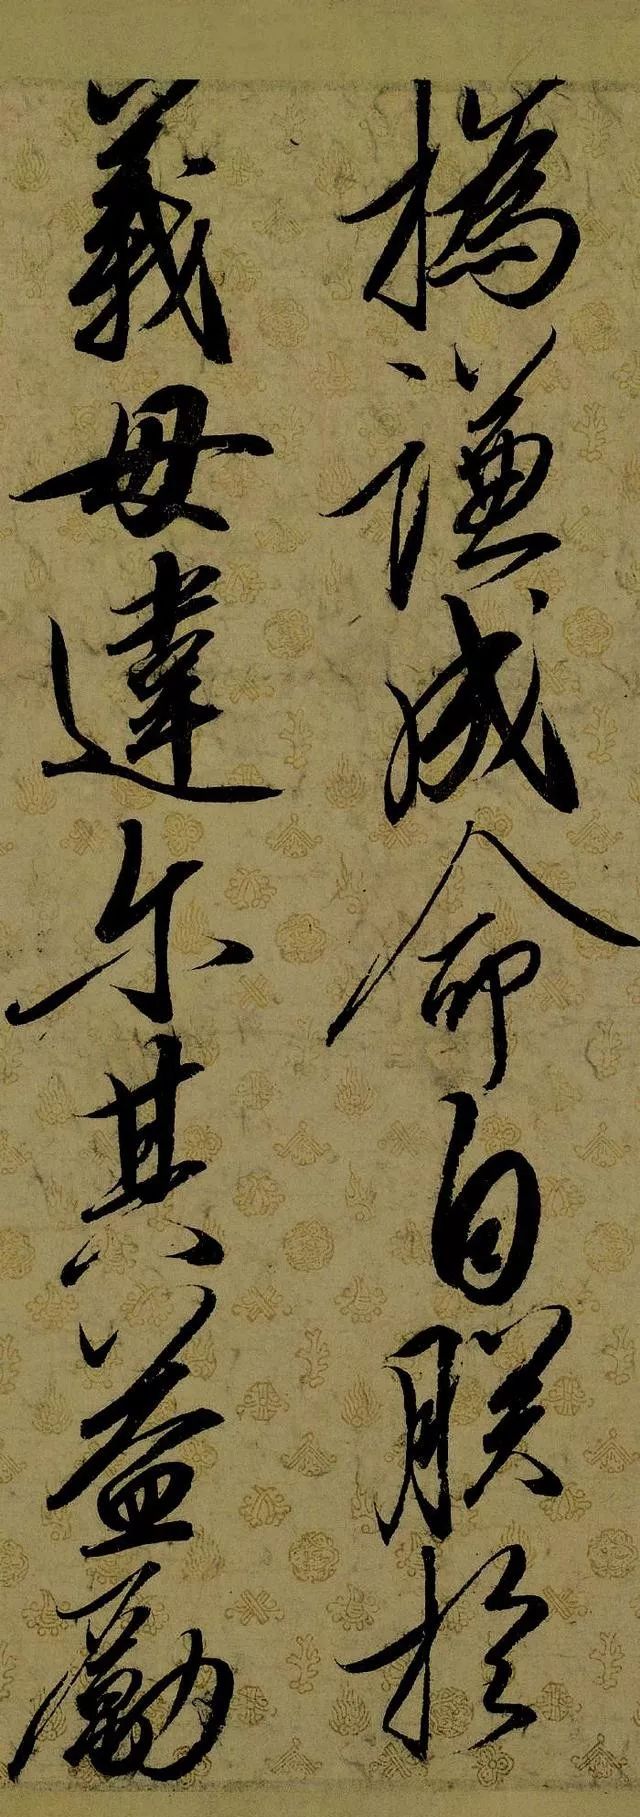 撝謙成命自朕於
義毋違尔其益勵